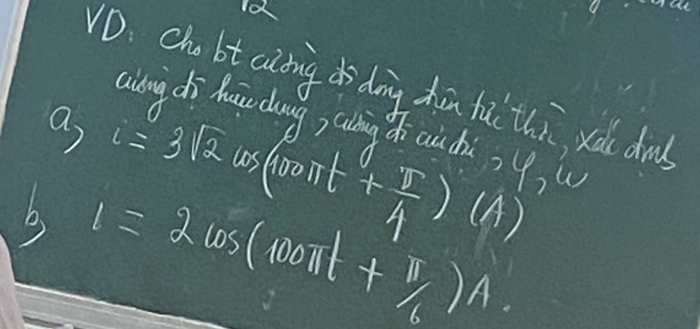 √2
VD: Cho bt cường độ dòng điện tức thời, xác định
cường độ hiệu dụng, cường độ cực đại, φ, ω
a, i = 3√2 cos(100πt + π/4) (A)
b, i = 2 cos(100πt + π/6)A.